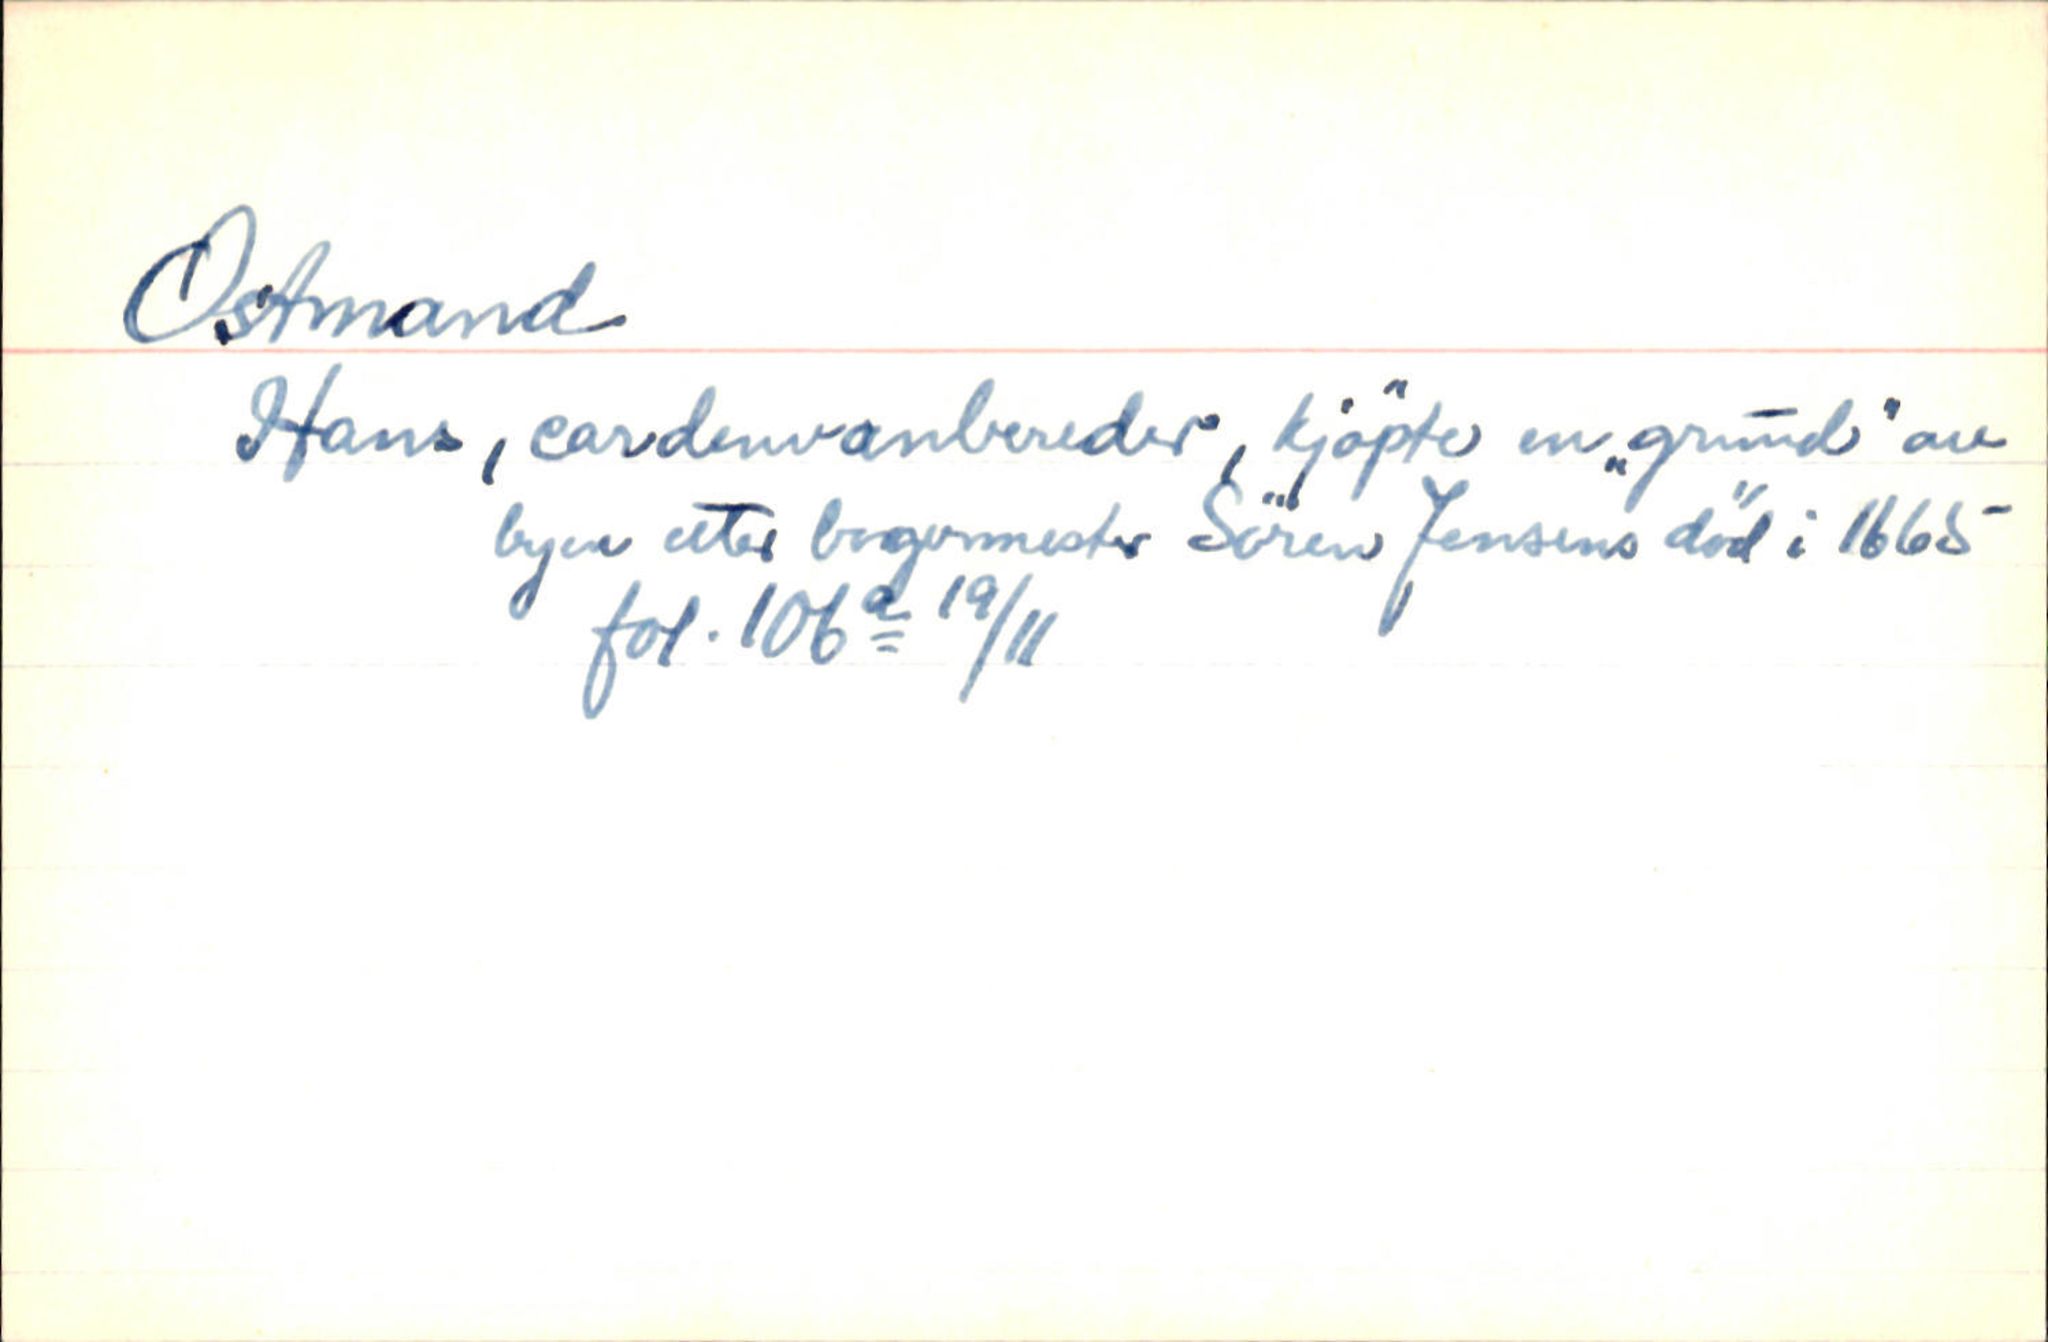 Ostmand
Hans, cardenvanbereder, kjöpte en „grund" av
byen etter borgermester Sören Jensens död i 1665
fol. 106a 19/11